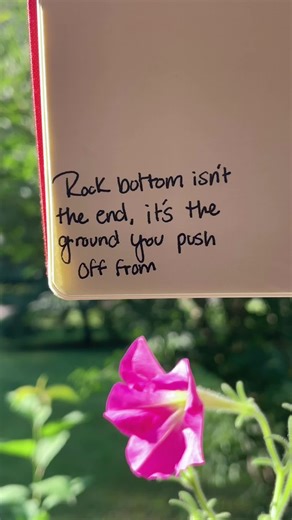 Rock bottom isn't
the end, it's the
ground you push
off from